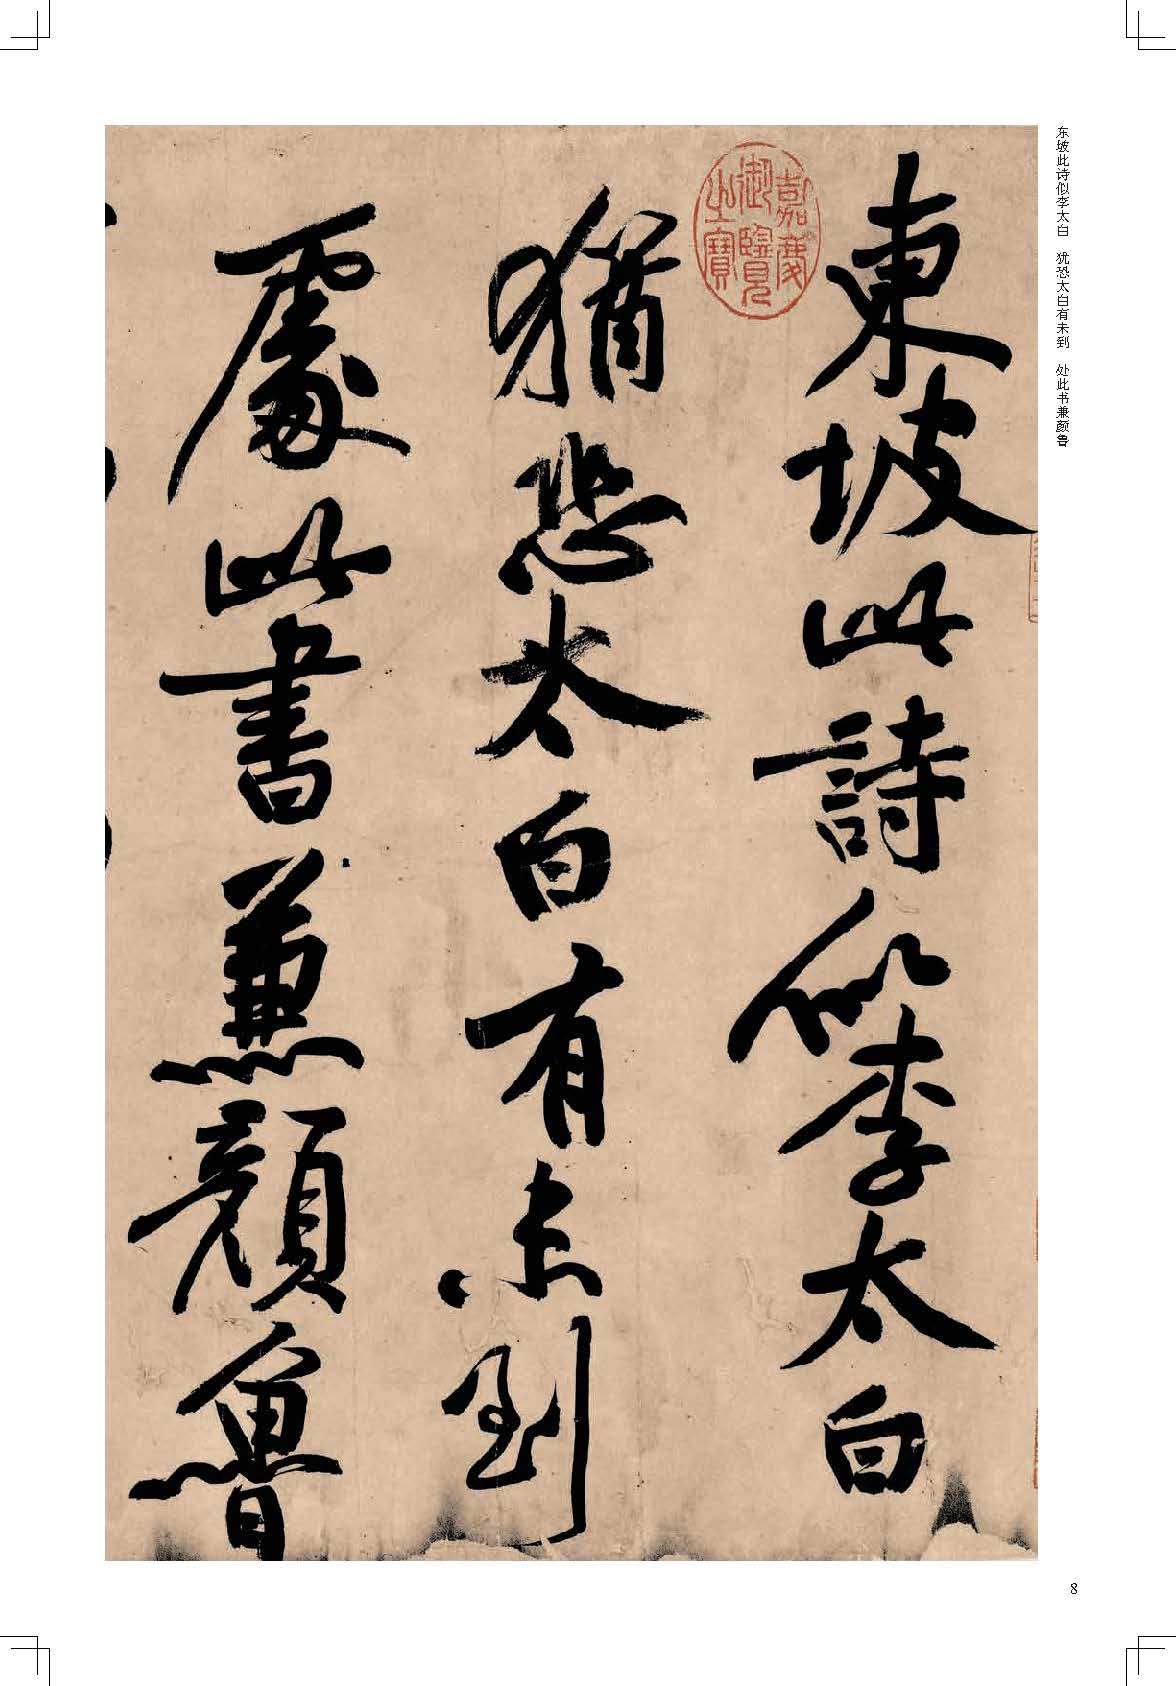 東坡此詩似李太白
猶恐太白有未到
處此書兼顔魯
嘉慶御覽之寶
东坡此诗似李太白　犹恐太白有未到　处此书兼颜鲁
8